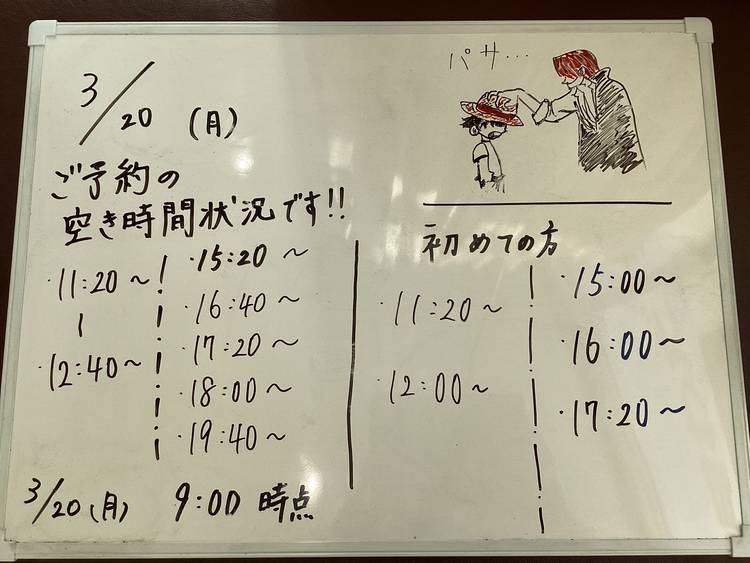 3/20 (月)
ご予約の
空き時間状況です!!
・11:20〜
〜
・12:40〜
・15:20〜
・16:40〜
・17:20〜
・18:00〜
・19:40〜
3/20(月) 9:00 時点
パサ…
初めての方
・11:20〜
・12:00〜
・15:00〜
・16:00〜
・17:20〜